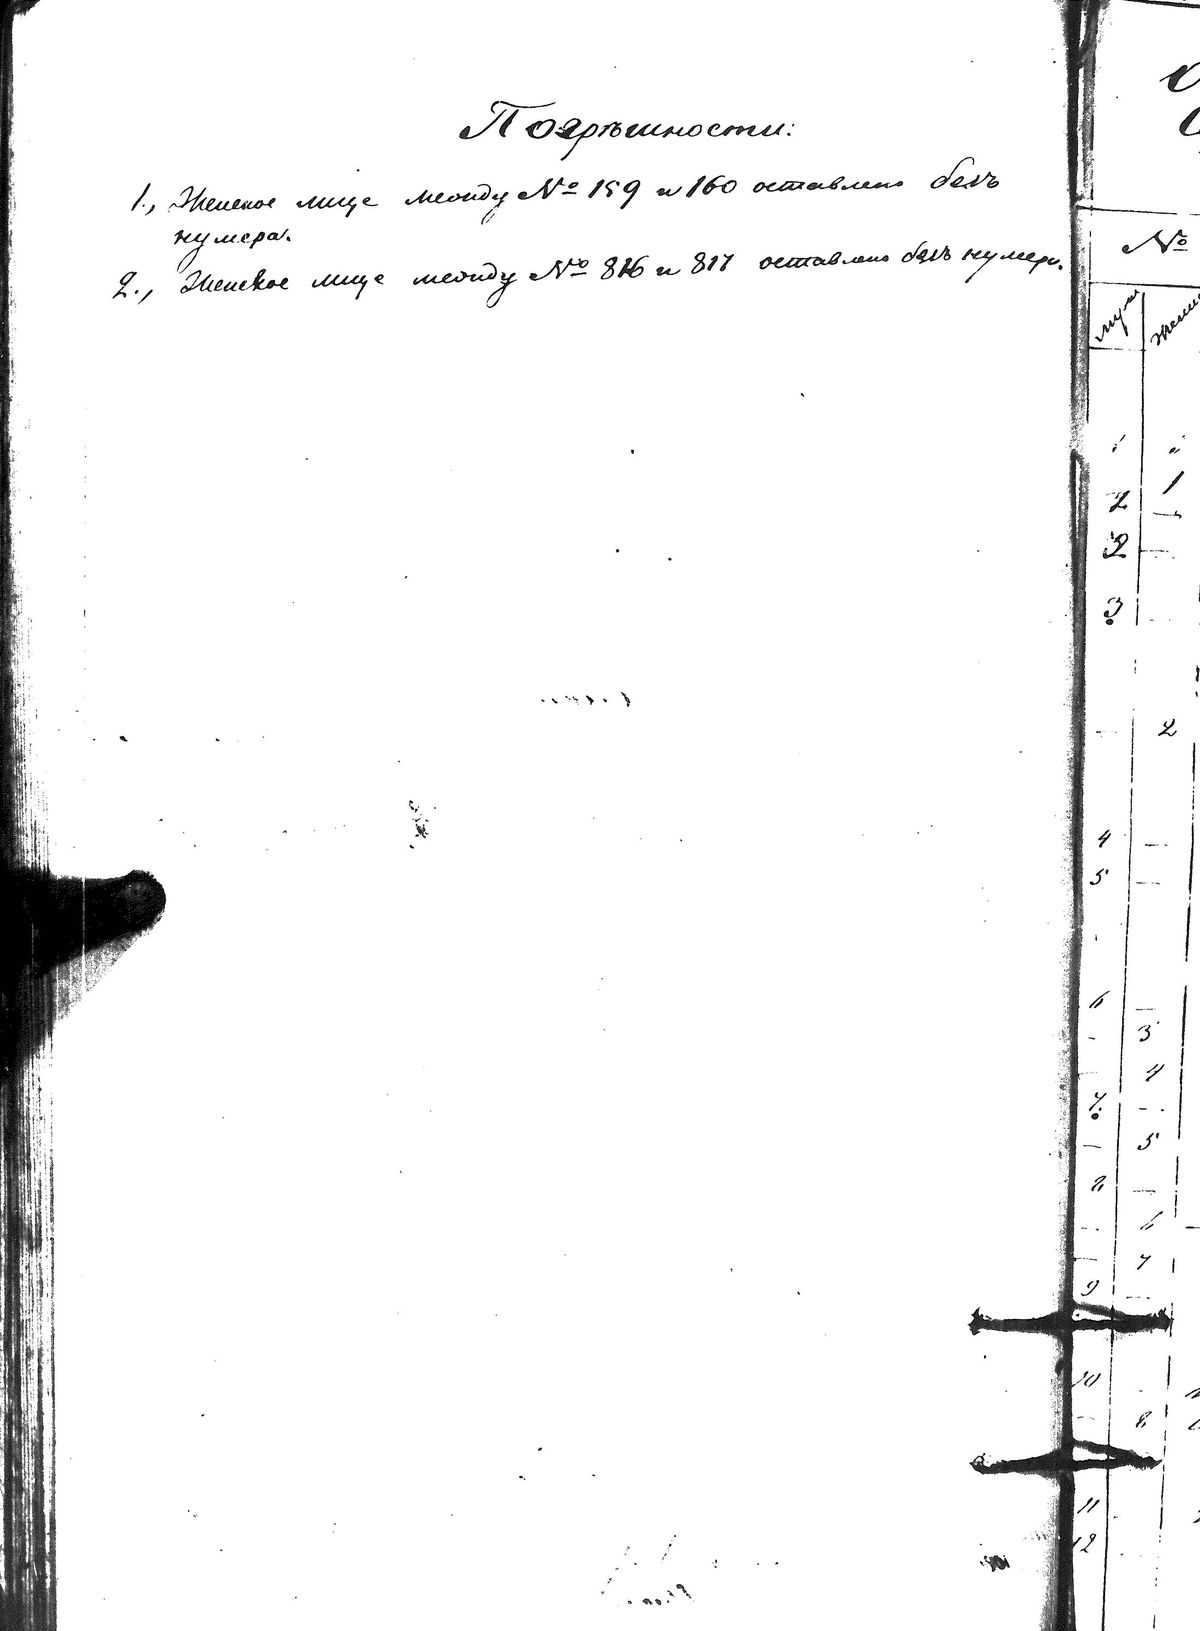 Погрѣшности:
1., Женское лице между № 159 и 160 оставлено безъ
нумера.
2., Женское лице между № 816 и 817 оставлено безъ нумера.
№
муж
жен
1
2
2
3
2
4
5
6
3
4
7.
5
8
6
7
9
10
8
11
12